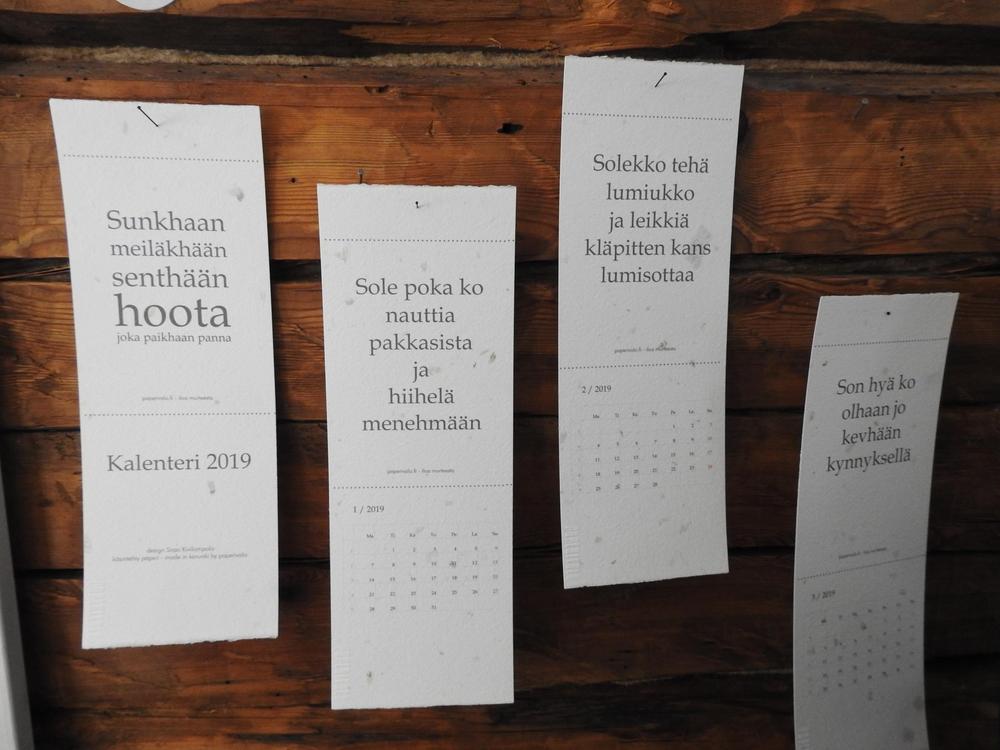 Sunkhaan
meiläkhään
senthään
hoota
joka paikhaan panna
papervalo.fi - iloa murteesta
Kalenteri 2019
design Sirpa Kivilompolo
käsintehty paperi - made in keruvski by papervalo
Sole poka ko
nauttia
pakkasista
ja
hiihelä
menehmään
papervalo.fi - iloa murteesta
1 / 2019
Ma Ti Ke To Pe La Su
1 2 3 4 5 6
7 8 9 10 11 12 13
14 15 16 17 18 19 20
21 22 23 24 25 26 27
28 29 30 31
Solekko tehä
lumiukko
ja leikkiä
kläpitten kans
lumisottaa
papervalo.fi - iloa murteesta
2 / 2019
Ma Ti Ke To Pe La Su
1 2 3
4 5 6 7 8 9 10
11 12 13 14 15 16 17
18 19 20 21 22 23 24
25 26 27 28
Son hyä ko
olhaan jo
kevhään
kynnyksellä
papervalo.fi - iloa murteesta
3 / 2019